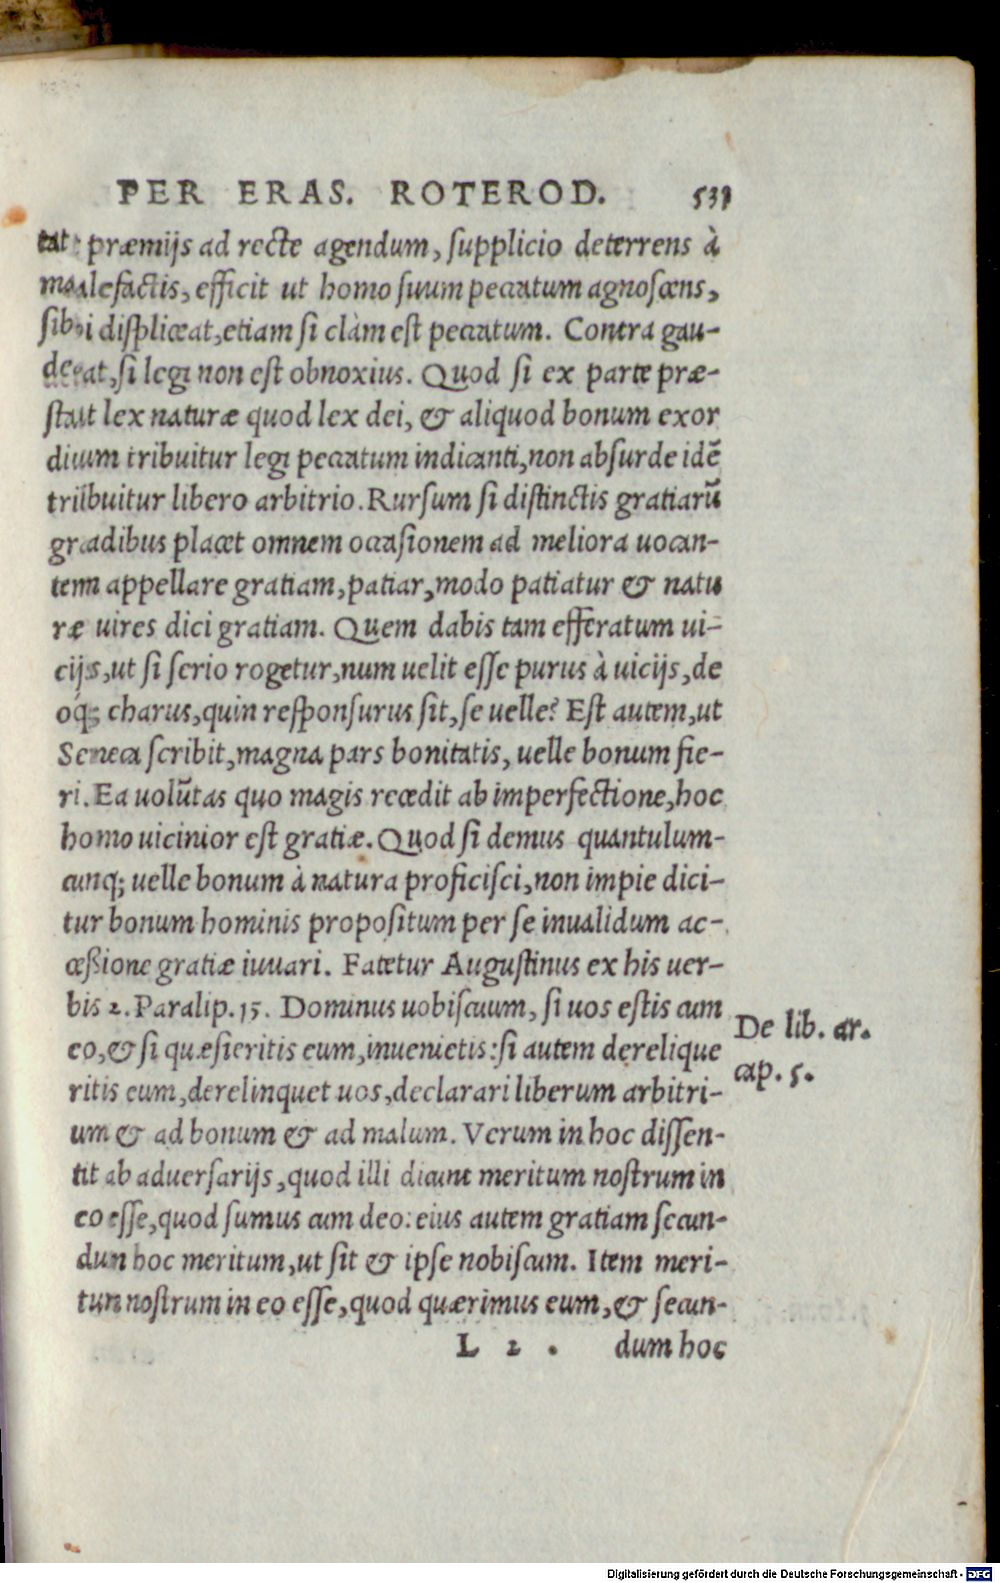 PER ERAS. ROTEROD. 531
tat præmijs ad recte agendum, supplicio deterrens à
malefactis, efficit ut homo suum peccatum agnoscens,
sibi displiceat, etiam si clàm est peccatum. Contra gau-
deat, si legi non est obnoxius. Quod si ex parte præ-
stat lex naturæ quod lex dei, & aliquod bonum exor
dium tribuitur legi peccatum indicanti, non absurde idē
tribuitur libero arbitrio. Rursum si distinctis gratiarū
gradibus placet omnem occasionem ad meliora uocan-
tem appellare gratiam, patiar, modo patiatur & natu
ræ uires dici gratiam. Quem dabis tam efferatum ui-
cijs, ut si serio rogetur, num uelit esse purus à uicijs, de
oq́; charus, quin responsurus sit, se uelle? Est autem, ut
Seneca scribit, magna pars bonitatis, uelle bonum fie-
ri. Ea volūtas quo magis recedit ab imperfectione, hoc
homo uicinior est gratiæ. Quod si demus quantulum-
cunq; uelle bonum à natura proficisci, non impie dici-
tur bonum hominis propositum per se inualidum ac-
cessione gratiæ iuuari. Fatetur Augustinus ex his uer-
bis 2. Paralip. 15. Dominus uobiscuum, si uos estis cum
eo, & si quæsieritis eum, inuenietis: si autem derelique
ritis eum, derelinquet uos, declarari liberum arbitri-
um & ad bonum & ad malum. Verum in hoc dissen-
tit ab aduersarijs, quod illi dicunt meritum nostrum in
eo esse, quod sumus cum deo: eius autem gratiam secun-
dun hoc meritum, ut sit & ipse nobiscum. Item meri-
tun nostrum in eo esse, quod quærimus eum, & secun-
L 2 . dum hoc
De lib. ar.
cap. 5.
Digitalisierung gefördert durch die Deutsche Forschungsgemeinschaft - DFG